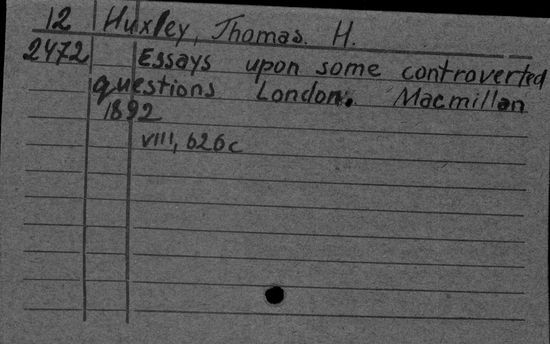 12 Huxley, Thomas. H.
2472 Essays upon some controverted
questions London. Macmillan
1892
VIII, 626c